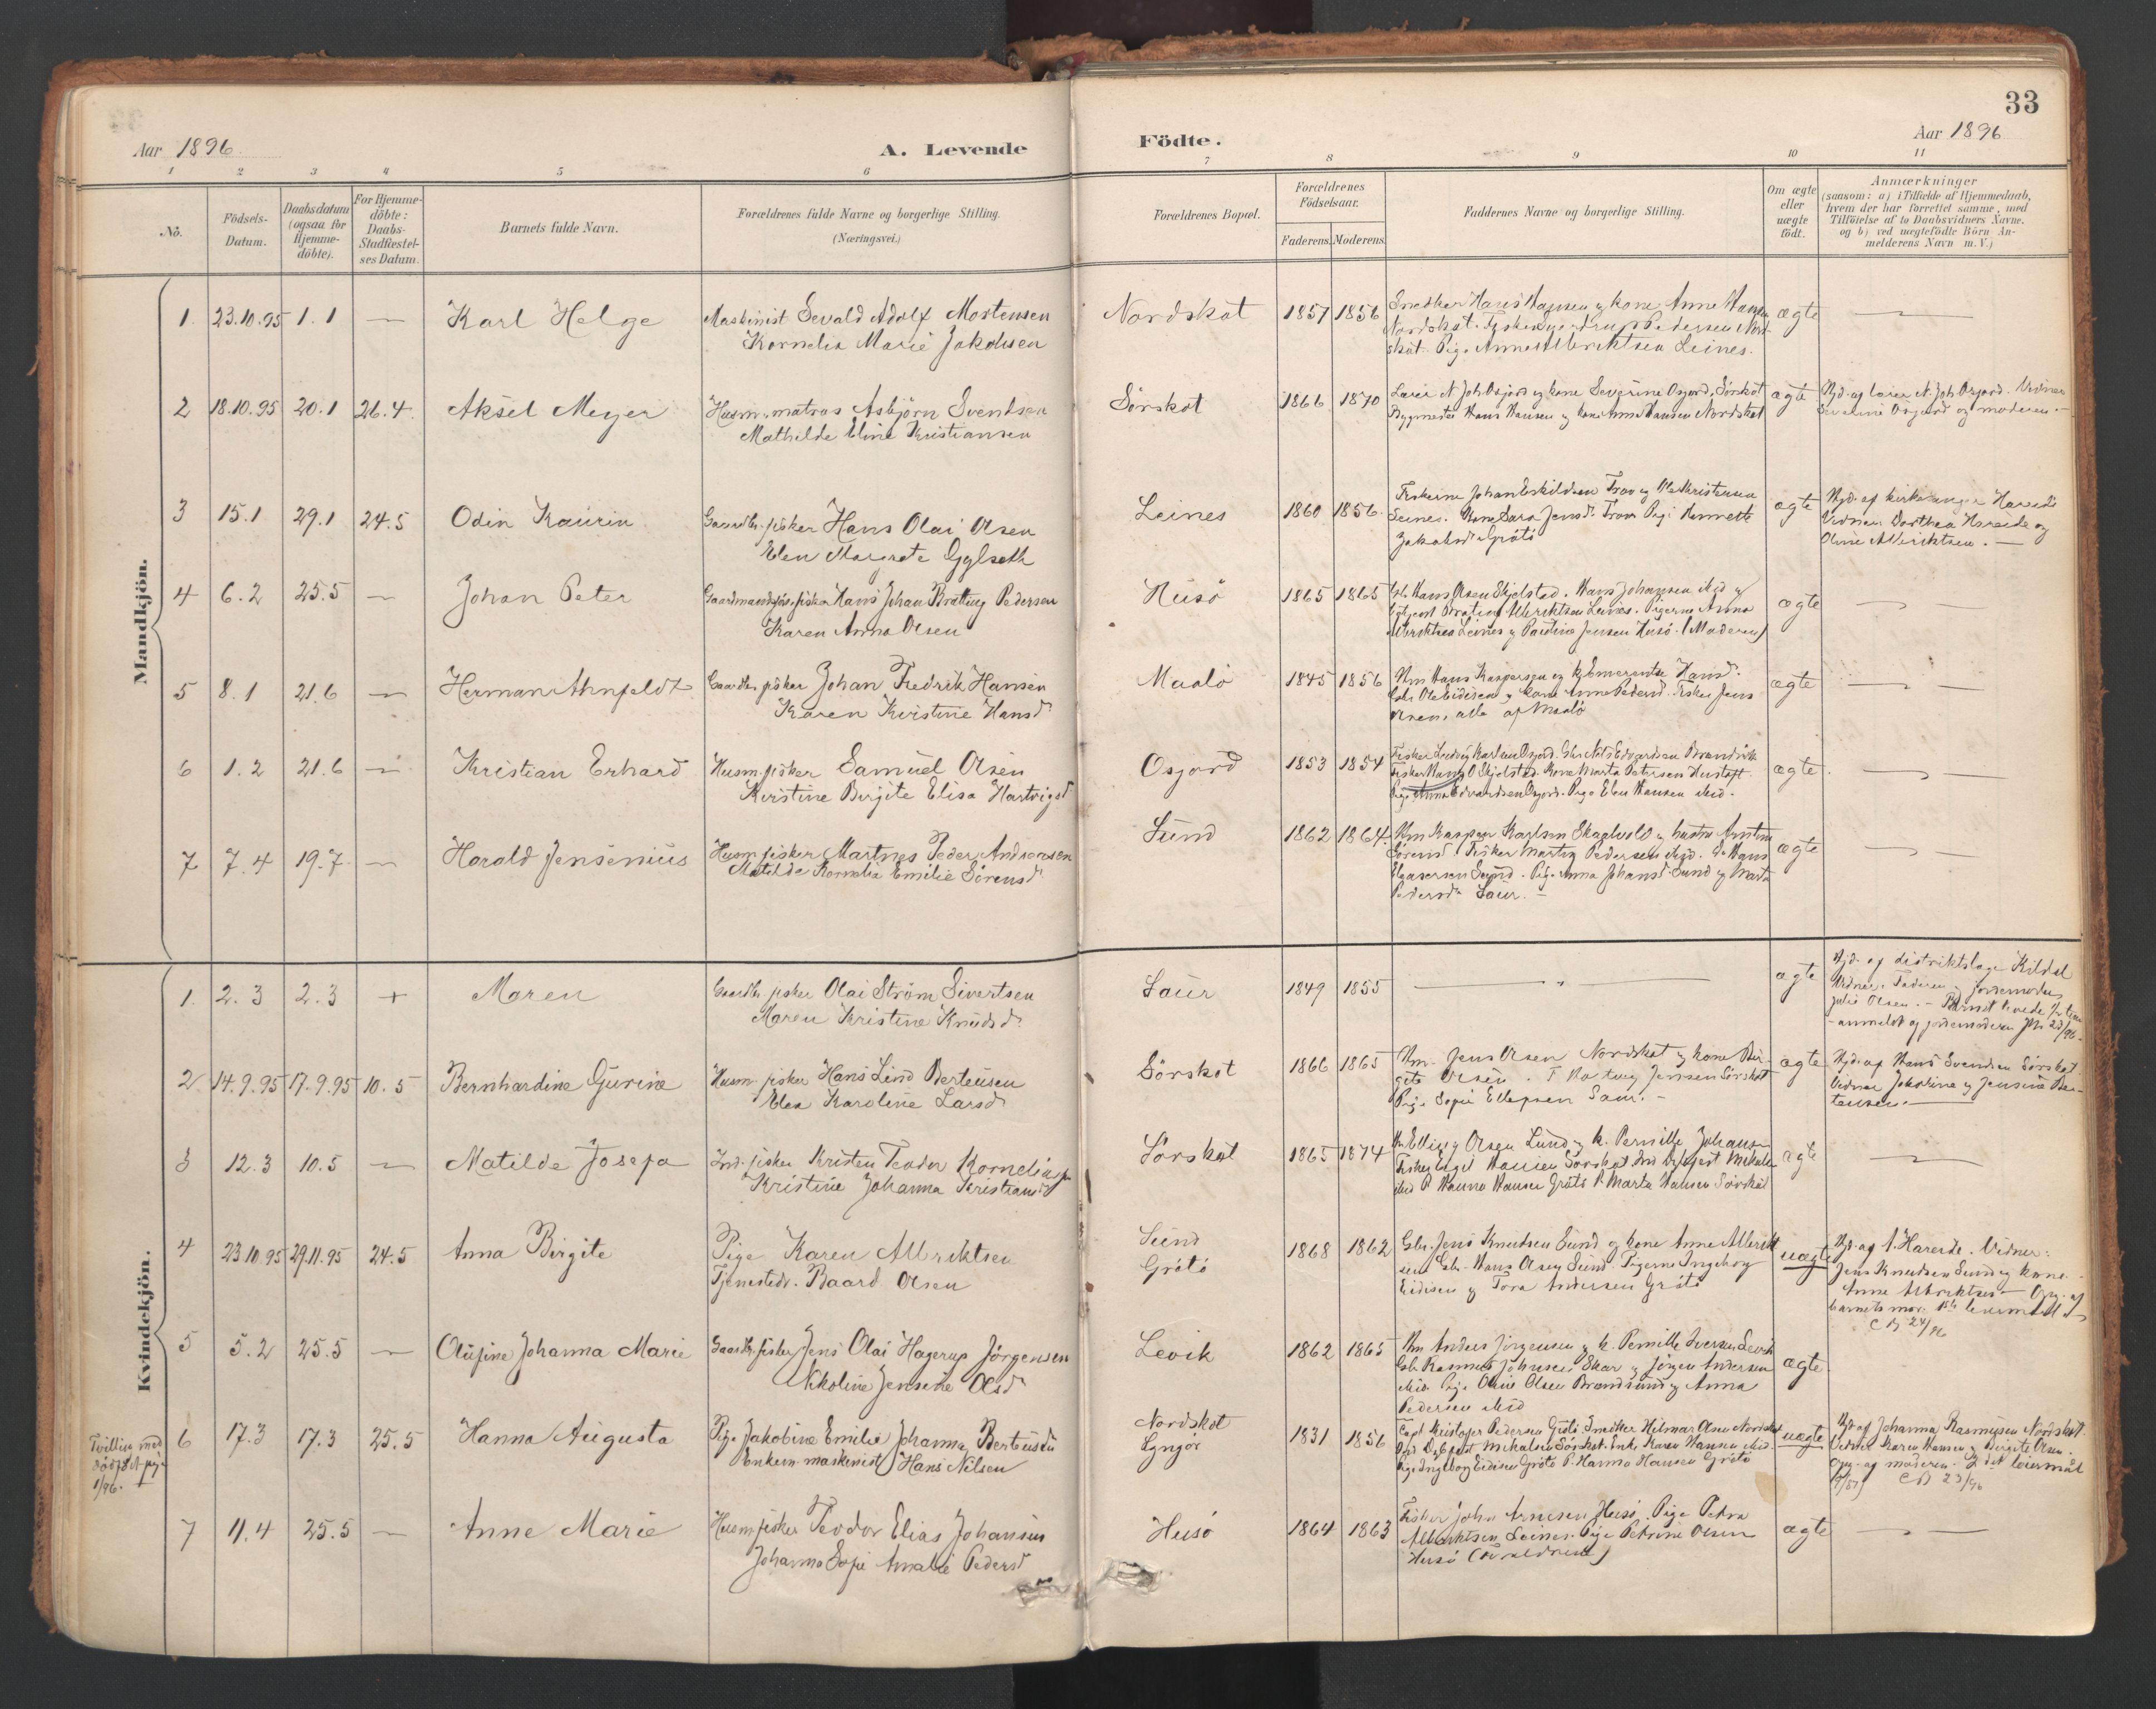 33
Aar 1896.
A. Levende
Födte.
Aar 1896
1 2 3 4 5 6 7 8 9 10 11
No.
Födsels-
Datum.
Daabsdatum
(ogsaa for
Hjemme-
döbte).
For Hjemme-
döbte:
Daabs-
Stadfæstel-
ses Datum.
Barnets fulde Navn.
Forældrenes fulde Navne og borgerlige Stilling.
(Næringsvei.)
Forældrenes Bopæl.
Forældrenes
Födselsaar.
Faderens. Moderens.
Faddernes Navne og borgerlige Stilling.
Om ægte
eller
uægte
födt.
Anmærkninger
(saasom: a) i Tilfælde af Hjemmedaab,
hvem der har forrettet samme, med
Tilföielse af to Daabsvidners Navne.
og b) ved uægtefödte Börn An-
melderens Navn m. V.)
Mandkjön.
1. 23.10.95 1.1 — Karl Helge
Maskinist Sevald Adolf Mortensen
Kornelia Marie Jakobsen
Nordskot 1857 1856
Snedker Hans Hansen og kone Anne Hansen
Nordskot. Pedersen Nord-
skot. Pige Anne Albriktsen Leines.
ægte —
2 18.10.95 20.1 26.4. Aksel Meyer
Husm. matros Asbjörn Svendsen
Mathilde Eline Kristiansen
Sörskot 1866 1870
Lærer N. Joh. Osjord og kone Severine Osjord, Sörskot
Bygmester Hans Hansen og kone Anna Hansen Nordskot
ægte
Hjd. af lærer N. Joh. Osjord. Vidner
Severine Osjord og moderen. —
3 15.1 29.1 24.5 Odin Kaurin
Gaardbr. fisker Hans Olai Olsen
Elen Margrete Gylseth
Leines 1860 1856.
Fiskerne Johan Eskildsen Tran og Ole Kristensen
Leines. Kone Sara Jensd. Tran Pige Hannette
Jakobsd. Grötö
ægte
Hjd. af kirkesanger Hareide
Vidner Dorthea Hareide og
Oline Albriktsen. —
4 6.2 25.5 — Johan Peter
Gaardmandssön, fisker Hans Johan Brattug Pedersen
Karen Anna Olsen
Husö 1865 1865
Gbr. Hans Olsen Skjelstad. Hans Johansen ibid og
Albriktsen Leines. Pigerne Anna
Albriktsen Leines og Pauline Jensen Husö. (Moderen)
ægte —
5 8.1 21.6 — Herman Ahnfeldt
Gaardbr. fisker Johan Fredrik Hansen
Karen Kristine Hansd.
Maalö 1845 1856
Hm Hans Kaspersen og k. Emerentse Hansd.
Gbr. Ole Eidisen og kone Anne Pedersd. Fisker Jens
Olsen, alle af Maalö
ægte —
6 1.2 21.6 — Kristian Erhard
Husm. fisker Samuel Olsen
Kristine Birgite Elisa Hartvigsd.
Osjord 1853 1854
Fisker Ludvig Karlsen Osjord. Gbr. Nils Edvardsen Brandvik
Fisker Hans O. Skjelstad. Kone Marta Petersen Hustoft.
Pige Anna Edvardsen Osjord. Pige Elen Hansen ibid.
ægte. —
7 7.4 19.7 — Harald Jensenius
Husm. fisker Martnes Peder Andreasen
Matilde Kornelia Emilie Sörensd.
Sund 1862 1864.
Hm Kasper Karlsen Skagvold og hustru
Sörensd. Fisker Martin Pedersen ibid. Hans
Sund. Pige Anna Johansd. Sund og Marta
Pedersd. Laur. —
ægte —
Kvindekjön.
1. 2.3 2.3 + Maren
Gaardbr. fisker Olai Ström Sivertsen
Maren Kristine Knudsd.
Laur 1849 1855
— " —
ægte
Hjd. af distriktslæge Kildal
Vidner: Faderen og jordemoder
Julie Olsen. — Barnet levede
anmeldt af jordemoderen 23/96.
2. 14.9.95 17.9.95 10.5 Bernhardine Gurine
Husm. fisker Hans Lind Berteusen
Elea Karoline Larsd.
Sörskot 1866 1865
Hm. Jens Olsen Nordskot og kone Bir-
gite Olsen. F. Hartvig Jensen Sörskot
Pige Sofie Ellefsen Laur. —
ægte
Hjd. af Hans Svendsen Sörskot
Vidner Jakobine og Jensine Ber-
teusen. —
3 12.3 10.5 — Matilde Josefa
Ind. fisker Kristen Teodor Korneliussen
Kristine Johanna Kristiansd.
Sörskot 1865 1874
Olsen Lund og k. Pernille Johansen
Fisker Hansen Sörskot Ind. Mikals.
ibid P. Hanna Hansen Grötö P. Marta Hansen Sörskot
ægte —
4 23.10.95 29.11.95 24.5 Anna Birgite
Pige Karen Albriktsen
Tjenestedr. Baard Olsen
Sund
Grötö 1868 1862
Gbr. Jens Knudsen Sund og kone Anne Albrikt-
sen Gbr. Hans Olsen Sund. Pigerne Ingeborg
Eidisen og Tora Andersen Grötö
uægte
Hjd. af A. Hareide. Vidner:
Jens Knudsen Sund og kone
Anne Albriktsen — Opg. af
barnets mor. 1ste leiermaal
24/96
5 5.2 25.5 — Olufine Johanna Marie
Gaardbr. fisker Jens Olai Hagerup Jörgensen
Nikoline Jensine Olsd.
Levik 1862 1865
Hm Anders Jörgensen og k. Pernille Iversen Levik
Gbr. Rasmus Johnsen Skar og Jörgen Andersen
ibid. Pige Oline Olsen Brandsund og Anna
Pedersen ibid
ægte.
Tvilling med
dödfödt pige
1/96.
6 17.3 17.3 25.5 Hanna Augusta
Pige Jakobine Emilie Johanna Berteusen
Enkem. maskinist Hans Nilsen
Nordskot
Lyngör 1831 1856
Capt. Kristofer Pedersen Grötö. Snedker Hilmar Olsen Nordskot
Ind. Mikalsen Sörskot. Enke Karen Hansen ibid.
Pige Ingeborg Eidisen Grötö P. Hanna Hansen Grötö
uægte
Hjd. af Johanna Rasmusen Nordskot.
Vidner Karen Hansen og Birgite Olsen.
Opg. af moderen. 2det leiermaal
23/96
7 11.4 25.5 — Anne Marie
Husm. fisker Teodor Elias Johansen
Johanna Sofie Amalie Pedersd.
Husö 1864 1863
Fisker John Arnesen Husö. Pige Petra
Albriktsen Leines. Pige Petrine Olsen
Husö (Forældrene)
ægte —